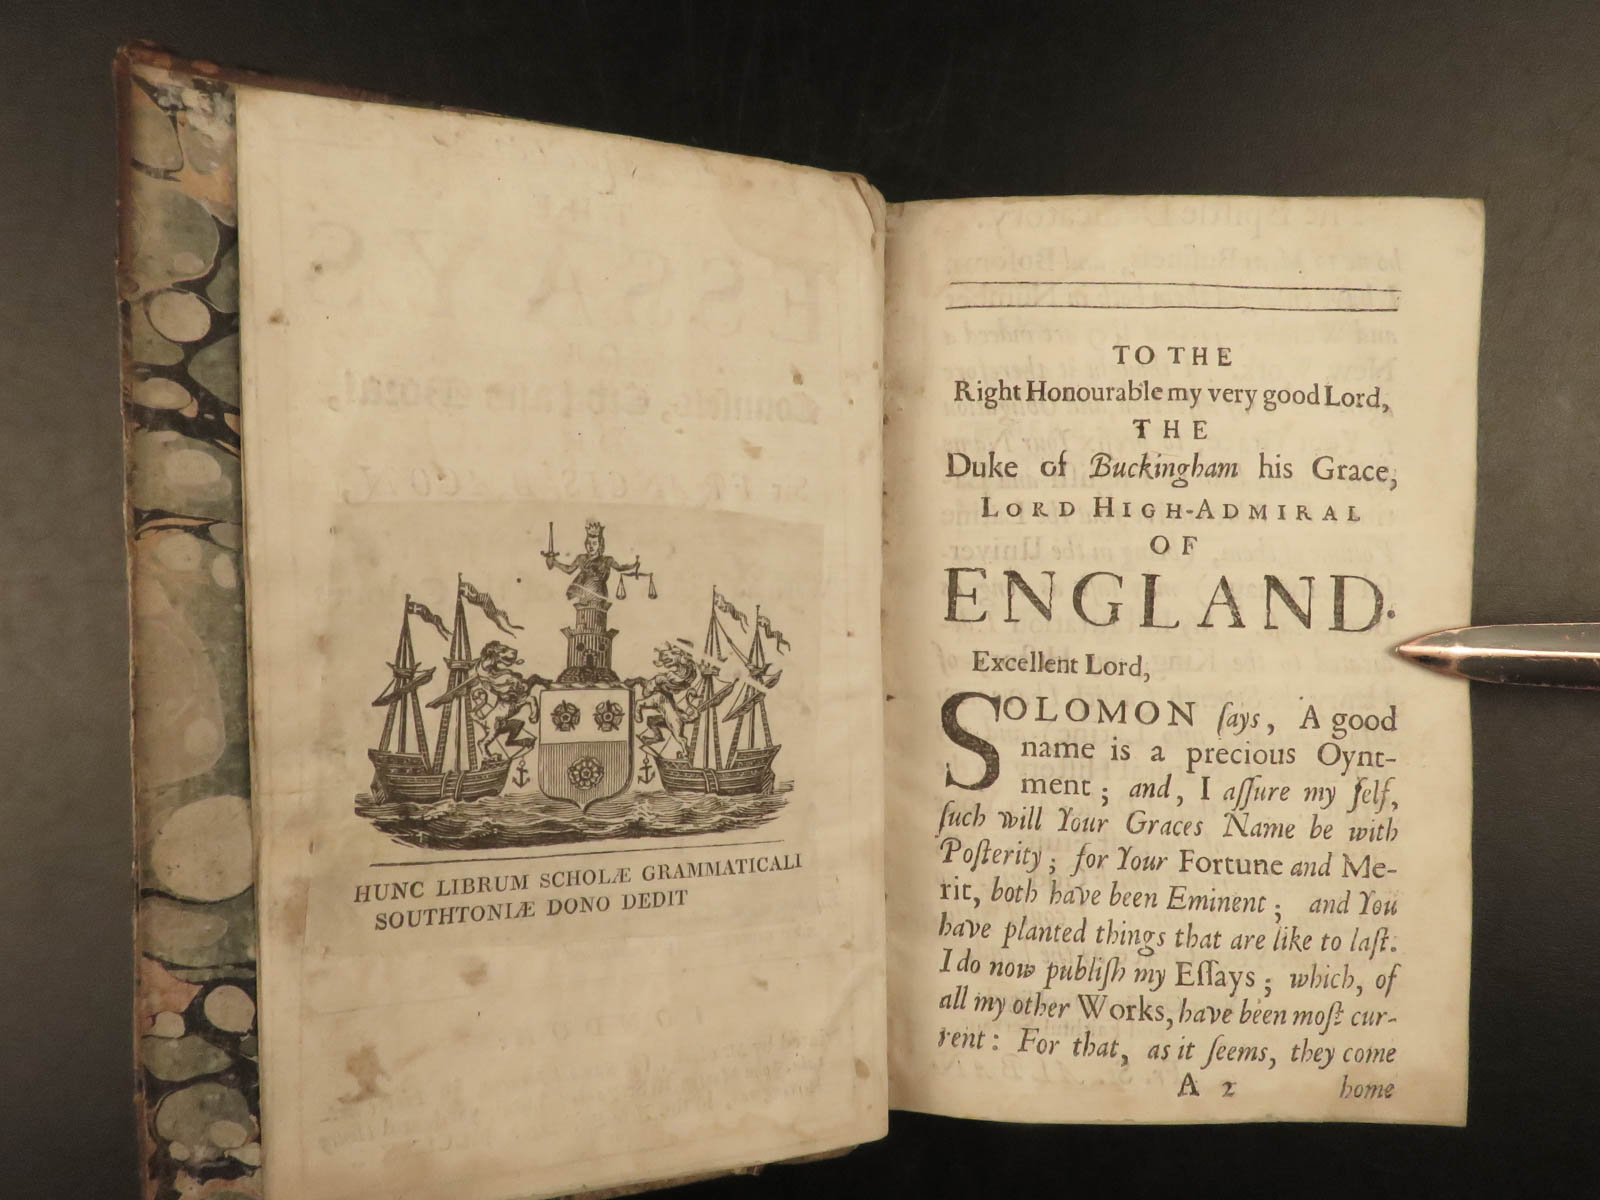 HUNC LIBRUM SCHOLÆ GRAMMATICALI
SOUTHTONIÆ DONO DEDIT
TO THE
Right Honourable my very good Lord,
THE
Duke of Buckingham his Grace,
LORD HIGH-ADMIRAL
OF
ENGLAND.
Excellent Lord,
SOLOMON ſays, A good
name is a precious Oynt-
ment; and, I aſſure my ſelf,
ſuch will Your Graces Name be with
Poſterity; for Your Fortune and Me-
rit, both have been Eminent; and You
have planted things that are like to laſt.
I do now publiſh my Eſſays; which, of
all my other Works, have been moſt cur-
rent: For that, as it ſeems, they come
A 2 home